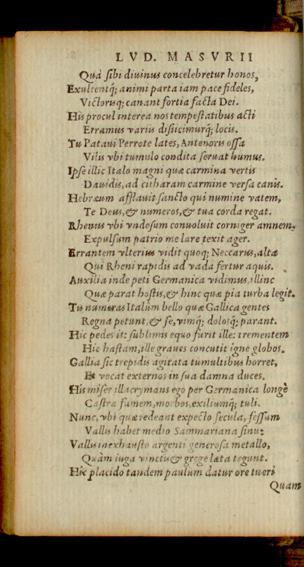 LVD. MASVRII
Quà sibi diuinus concelebretur honos,
Exultentq́; animi parta iam pace fideles,
Victorisq́; canant fortia facta Dei.
His procul interea nos tempestatibus acti
Erramus variis disiicimurq́; locis.
Tu Pataui Perrote lates, Antenoris ossa
Vilis vbi tumulo condita seruat humus.
Ipse illic Italo magni quæ carmina vertis
Dauidis, ad citharam carmine versa canis.
Hebræum afflauit sancto qui numine vatem,
Te Deus, & numeros, & tua corda regat.
Rhenus vbi vndosum conuoluit corniger amnem,
Expulsum patrio me lare texit ager.
Errantem vlterius vidit quoq; Neccarus, altæ
Qui Rheni rapidis ad vada fertur aquis.
Auxilia inde peti Germanica vidimus, illinc
Quæ parat hostis, & hinc quæ pia turba legit.
Tu numeras Italûm bello quæ Gallica gentes
Regna petunt, & se, vimq́; dolosq́; parant.
Hic pedes it: sublimis equo furit ille: trementem
Hic hastam, ille graues concutit igne globos.
Gallia sic trepidis agitata tumultibus horret,
Et vocat externos in sua damna duces.
His miser illacrymans ego per Germanica longè
Castra famem, morbos, exiliumq́; tuli.
Nunc, vbi quæ redeant expecto secula, fessum
Vallis habet medio Sammariana sinu:
Vallis inexhausto argenti generosa metallo,
Quàm iuga vinctu & grege læta tegunt.
Hic placido tandem paulum datur ore tueri
Quam